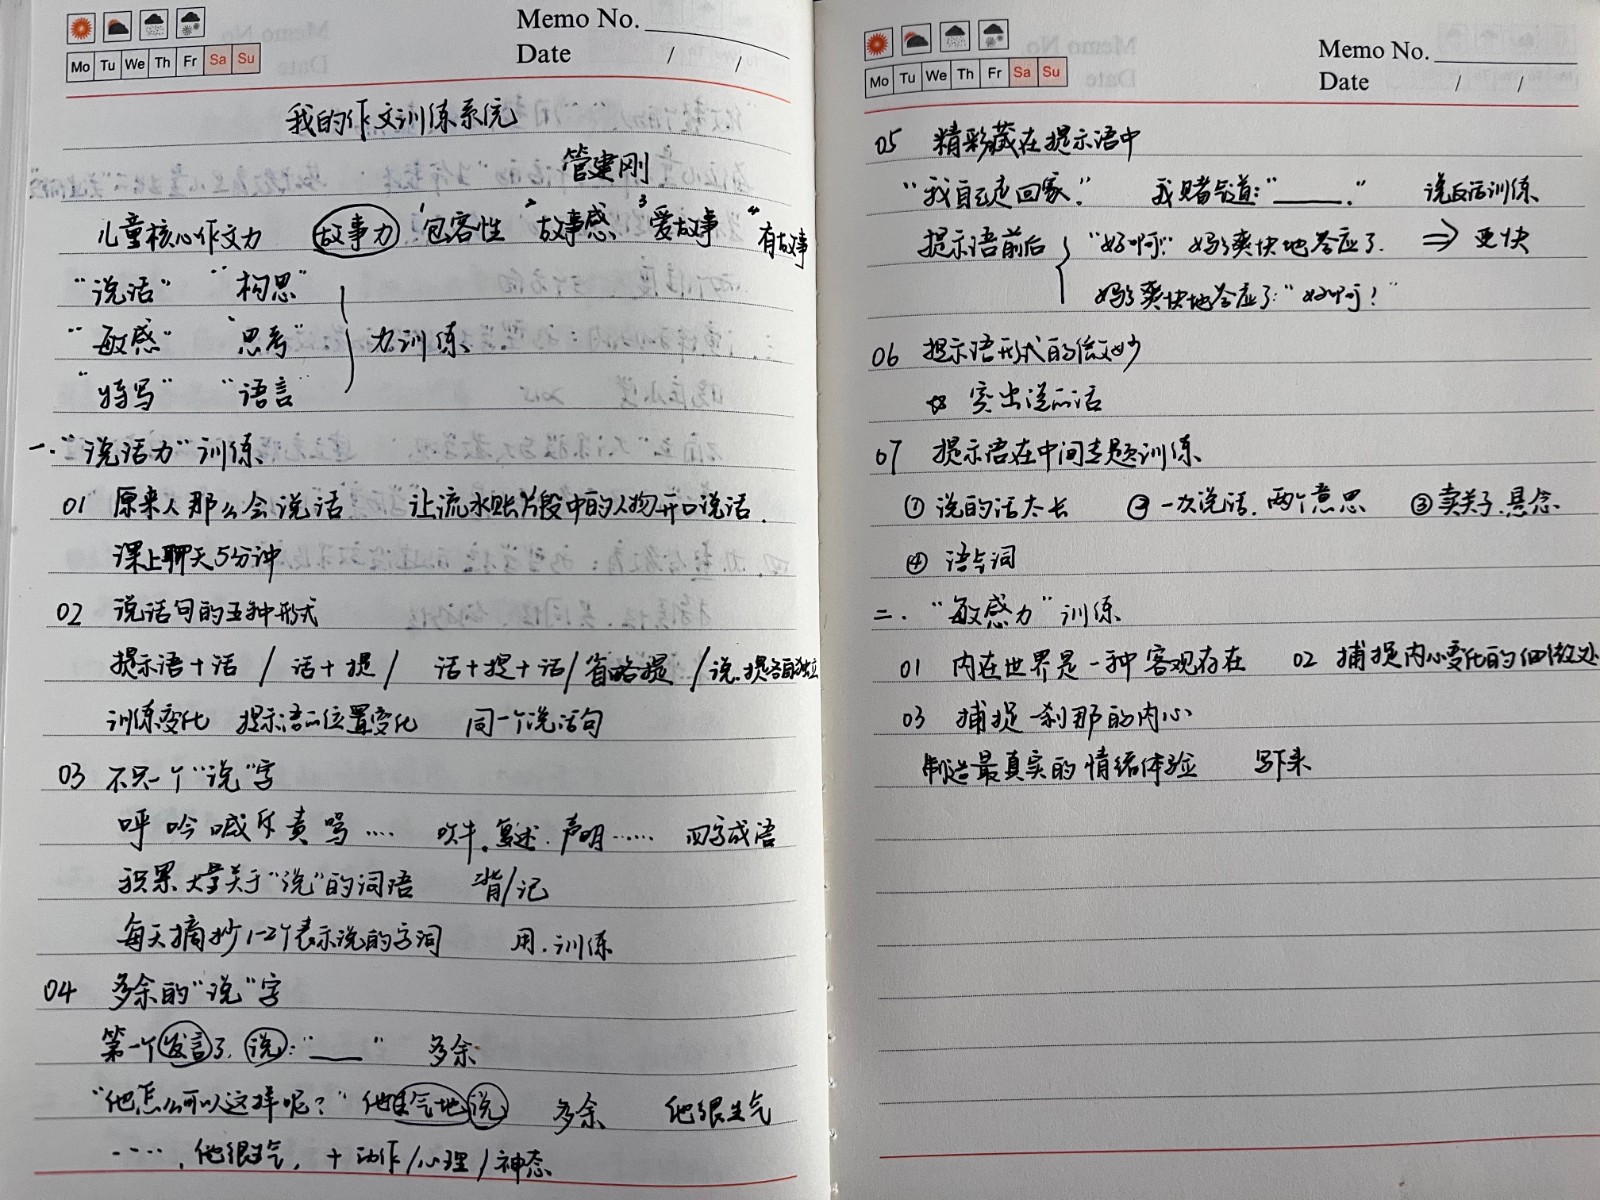 Memo No.
Mo Tu We Th Fr Sa Su
Date / /
我的作文训练系统
管建刚
儿童核心作文力 故事力 1包容性 2故事感 3爱故事 4有故事
“说话” “构思”
“敏感” “思考” 力训练
“特写” “语言”
一.“说话力”训练
01 原来人那么会说话 让流水账片段中的人物开口说话.
课上聊天5分钟
02 说话句的五种形式
提示语+话 / 话+提 / 话+提+话 / 省略提 / 说.提各自独立
训练变化 提示语的位置变化 同一个说话句
03 不只一个“说”字
呼 吟 喊 斥 责 骂 …… 吹牛.复述.声明…… 四字成语
积累大量关于“说”的词语 背/记
每天摘抄1-2个表示说的字词 用.训练
04 多余的“说”字
第一个发言了,说:“___” 多余
“他怎么可以这样呢?”他生气地说 多余 他很生气
……,他很生气, + 动作/心理/神态
Memo No.
Mo Tu We Th Fr Sa Su
Date / /
05 精彩藏在提示语中
“我自己走回家.” 我赌气道:“____.” 说反话训练
提示语前后 “好啊!”妈妈爽快地答应了. ⇒ 更快
妈妈爽快地答应了:“好啊!”
06 提示语形式的微妙
☆ 突出说的话
07 提示语在中间专题训练
① 说的话太长 ② 一次说话.两个意思 ③ 卖关子.悬念
④ 语与词
二.“敏感力”训练
01 内在世界是一种客观存在 02 捕捉内心变化的细微处
03 捕捉一刹那的内心
制造最真实的情绪体验 写下来